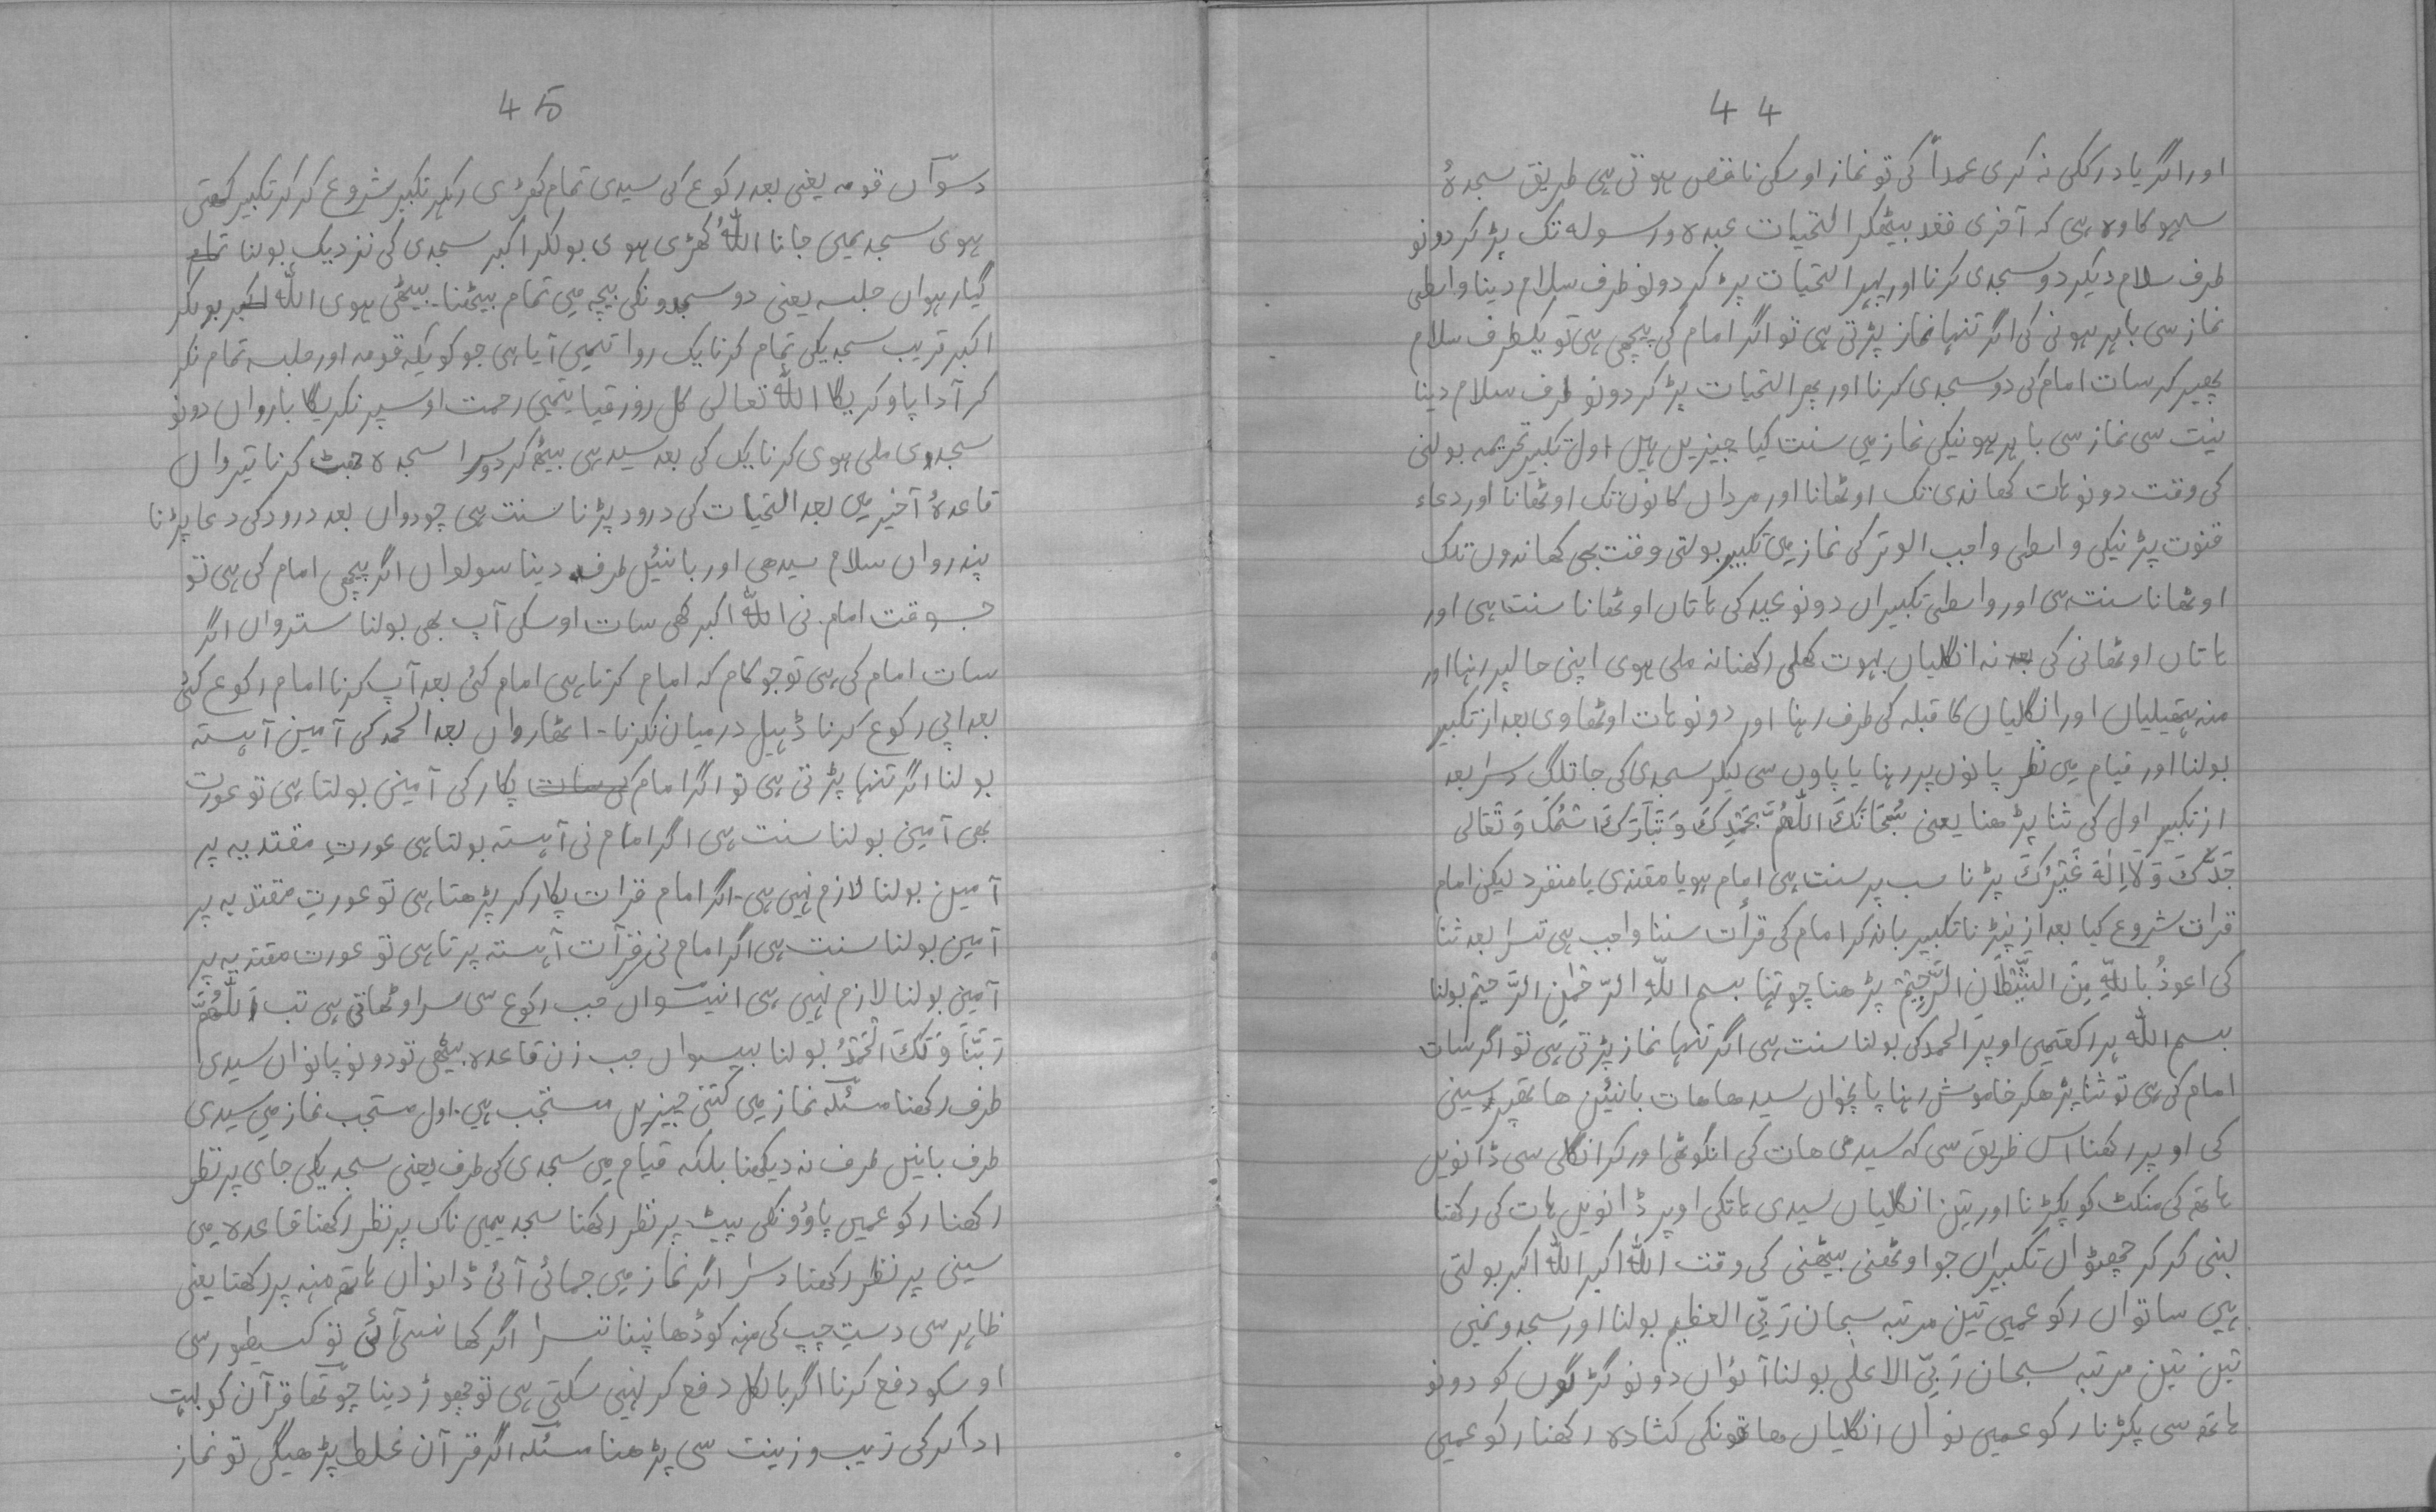 44
اور اگر یاد رککی نہ کری عمداً کی تو نماز اوسکی ناقص ہوتی ہی طریق سجدۂ
سہو کا وہ ہی کہ آخری قعد بیٹھکر التحیات عبدہ ورسولہ تک پڑ کر دونو
طرف سلام دیکر دو سجدی کرنا اور پہر التحیات پڑ کر دونو طرف سلام دینا واسطی
نماز سی باہر ہونی کی اگر تنہا نماز پڑتی ہی تو اگر امام کی پیچھی ہی تو یکطرف سلام
پھیر کر سات امام کی دو سجدی کرنا اور پھر التحیات پڑ کر دونو طرف سلام دینا
نیت سی نماز سی باہر ہونیکی نماز می سنت کیا چیزیں ہیں اول تکبیر تحریمہ بولنی
کی وقت دونو ہات کھاندی تک اوٹھانا اور مرداں کانوں تک اوٹھانا اور دعاء
قنوت پڑنیکی واسطی واجب الوتر کی نماز میں تکبیر بولتی وقت بھی کھاندوں تلک
اوٹھانا سنت ہی اور واسطی تکبیراں دونو عید کی ہاتاں اوٹھانا سنت ہی اور
ہاتاں اوٹھانی کی بعد نہ انگلیاں بہوت کھلی رکھنا نہ ملی ہوی اپنی حالپر رہنا اور
منہ ہتھیلیاں اور انگلیاں کا قبلہ کی طرف رہنا اور دونو ہات اوٹھاوی بعد از تکبیر
بولنا اور قیام می نظر پانوں پر رہنا یا پاوں سی لیکر سجدی کی جا تلگ دسرا بعد
از تکبیر اول کی ثنا پڑھنا یعنی سُبْحَانَكَ اَللّٰھُمَّ بِحَمْدِكَ وَ تَبَارَكَ اسْمُكَ وَ تَعَالی
جَدُّكَ وَ لَا اِلٰهَ غَیْرُكَ پڑنا سب پر سنت ہی امام ہو یا مقتدی یا منفرد لیکن امام
قرات شروع کیا بعد از نپڑنا تکبیر باندکر امام کی قرأت سننا واجب ہی تسرا بعد ثنا
کی اعوذُ بِاللّٰہِ مِنَ الشَّیْطَانِ الرَّجِیْمِ پڑھنا چوتہا بسم اللّٰہِ الرّحْمٰنِ الرَّحیْمِ بولنا
بسم اللّٰہ ہر رکعتمیں اوپر الحمد کی بولنا سنت ہی اگر تنہا نماز پڑتی ہی تو اگر سات
امام کی ہی تو ثنا پڑھکر خاموش رہنا پانچواں سیدھا ھات بائیں ھاتھپر سینی
کی اوپر رکھنا اس طریق سی کہ سیدھی ھات کی انگوٹھی اور کرانگلی سی ڈانویں
ہاتھ کی منکٹ کو پکڑنا اور تین انگلیاں سیدی ہاتکی اوپر ڈانویں ہات کی رکھنا
لبنی کر کر چھٹواں تکبیراں جو اوٹھنی بیٹھنی کی وقت اللّٰہ اکبر اللّٰہ اکبر بولتی
ہیی ساتواں رکوعمیں تین مرتبہ سبحان رَبِّیَ العظیم بولنا اور سجدونمیں
تین تین مرتبہ سبحان رَبِّیَ الاعلٰی بولنا آٹواں دونو گڑگوں کو دونو
ہاتھ سی پکڑنا رکوعمیں نواں انگلیاں ھاتونکی کشادہ رکھنا رکوعمیں
45
دسواں قومہ یعنی بعد رکوع کی سیدی تمام کھڑی رہکر تکبیر شروع کر کر تکبیر کھتی
ہوی سجدیمیں جانا اللّٰهُ کھڑی ہوی بولکر اکبر سجدی کی نزدیک بولنا تمام
گیارہواں جلسہ یعنی دو سجدونکی بیچہ می تمام بیٹھنا۔ بیٹھی ہوی اللّٰہ اکبر بولکر
اکبر قریب سجدیکی تمام کرنا یک روایتمیں آیا ہی جو کویکہ قومہ اور جلسہ تمام نکر
کر آدا پاو کریگا اللّٰہ تعالی کل روز قیامتمیں رحمت اوسپر نکریگا بارواں دونو
سجدی ملی ہوی کرنا یک کی بعد سیدہی بیٹھ کر دوسرا سجدہ جھٹ کرنا تیرواں
قاعدۂ آخیر میں بعد التحیات کی درود پڑنا سنت ہی چودواں بعد درود کی دعا پڑنا
پندرواں سلام سیدھی اور بائیں طرف دینا سولواں اگر پیچھی امام کی ہی تو
جسوقت امام نی اللّٰہ اکبر کھی سات اوسکی آپ بھی بولنا ستروان اگر
سات امام کی ہی تو جو کام کہ امام کرتا ہی امام کئی بعد آپ کرنا امام رکوع کئی
بعد اپی رکوع کرنا ڈہیل درمیان نکرنا۔ اٹھارواں بعد الحمد کی آمین آہستہ
بولنا اگر تنہا پڑتی ہی تو اگر امام کی سات پکار کی آمین بولتا ہی تو عورت
بھی آمین بولنا سنت ہی اگر امام نی آہستہ بولتا ہی عورتِ مقتدیہ پر
آمین بولنا لازم نہیں ہی۔ اگر امام قرات پکار کر پڑھتا ہی تو عورتِ مقتدیہ پر
آمین بولنا سنت ہی اگر امام نی قرآت آہستہ پڑتا ہی تو عورت مقتدیہ پر
آمین بولنا لازم نہیں ہی انیسواں جب رکوع سی سر اوٹھاتی ہی تب اَللّٰھُمَّ
رَبَّنَا وَ لَكَ الْحَمْدُ بولنا بیسواں جب زن قاعدہ بیٹھی تو دونو پانواں سیدی
طرف رکھنا مسئلہ نماز می کتنی چیزیں مستحب ہی۔ اول مستحب نماز می سیدی
طرف بائیں طرف نہ دیکھنا بلکہ قیام می سجدی کی طرف یعنی سجدیکی جای پر نظر
رکھنا رکوعمیں پاؤونکی پیٹ پر نظر رکھنا سجدیمیں ناک پر نظر رکھنا قاعدہ می
سینی پر نظر رکھنا دسرا اگر نماز می جمائی آئی ڈانواں ہاتھ منہ پر رکھنا یعنی
ظاہر سی دستِ چپ کی منہ کو ڈھانپنا تسرا اگر کھانسی آئی تو کسیطور سی
اوسکو دفع کرنا اگر بالکل دفع کر نہیں سکتی ہی تو چھوڑ دینا چوتھا قرآن کو بہت
ادا کر کی زیب و زینت سی پڑھنا مسئلہ اگر قرآن غلط پڑھیگی تو نماز